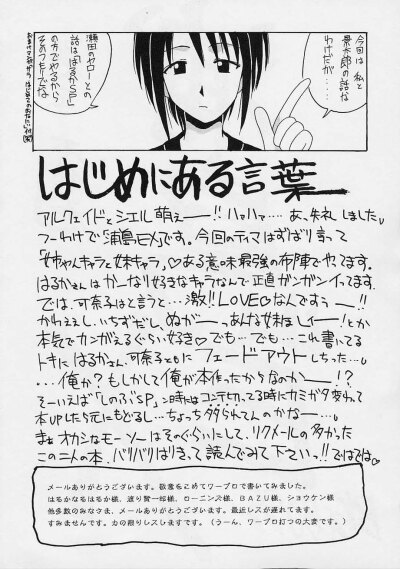 今回は私と
景太郎の話な
わけだが…
瀬田のヤローとの
話は「はるかSP」
の方でやるから
そのつもりでな
はじめにある言葉
アルクェイドとシエル萌えー!!ハァハァ‥‥あ、失礼しました。
つーわけで「浦島EX」です。今回のテイマはずばり言って
「姉ちゃんキャラと妹キャラ」♡ある意味最強の布陣でやってます。
はるかさんはかーなり好きなキャラなんで正直ガンガンイってます。
では、可奈子はと言うと…激!!LOVE♡なんですぅー!!
かわええし、いちずだし、ぬがーっあんな妹ほしィー!とか
本気でカンがえるぐらい好き♡でも…でも…これ書いてる
トキにはるかさん、可奈子ともにフェードアウトしちった…し…
…俺か?もしかして俺が本作ったからなのかー!?
そーいえば「しのぶSP」ン時はコンテ切ってる時にカミガタ変わって
本UPしたら元にもどるし…ちょっち祟られてんのかな…。
まぁオカシなモーソーはそのぐらいにして、リクメールの多かった
この二人の本、バリバリはりきって読んでみて下さいっ!!ではでは♡
メールありがとうございます。敬意をこめてワープロで書いてみました。
はるかなるはるか様、渡り賢一郎様、ローニンズ様、BAZU様、ショウケン様
他多数のみなさま、メールありがとうございます。最近レスが遅れてます。
すみませんです。力の限りレスしますです。(うーん、ワープロ打つの大変です。)